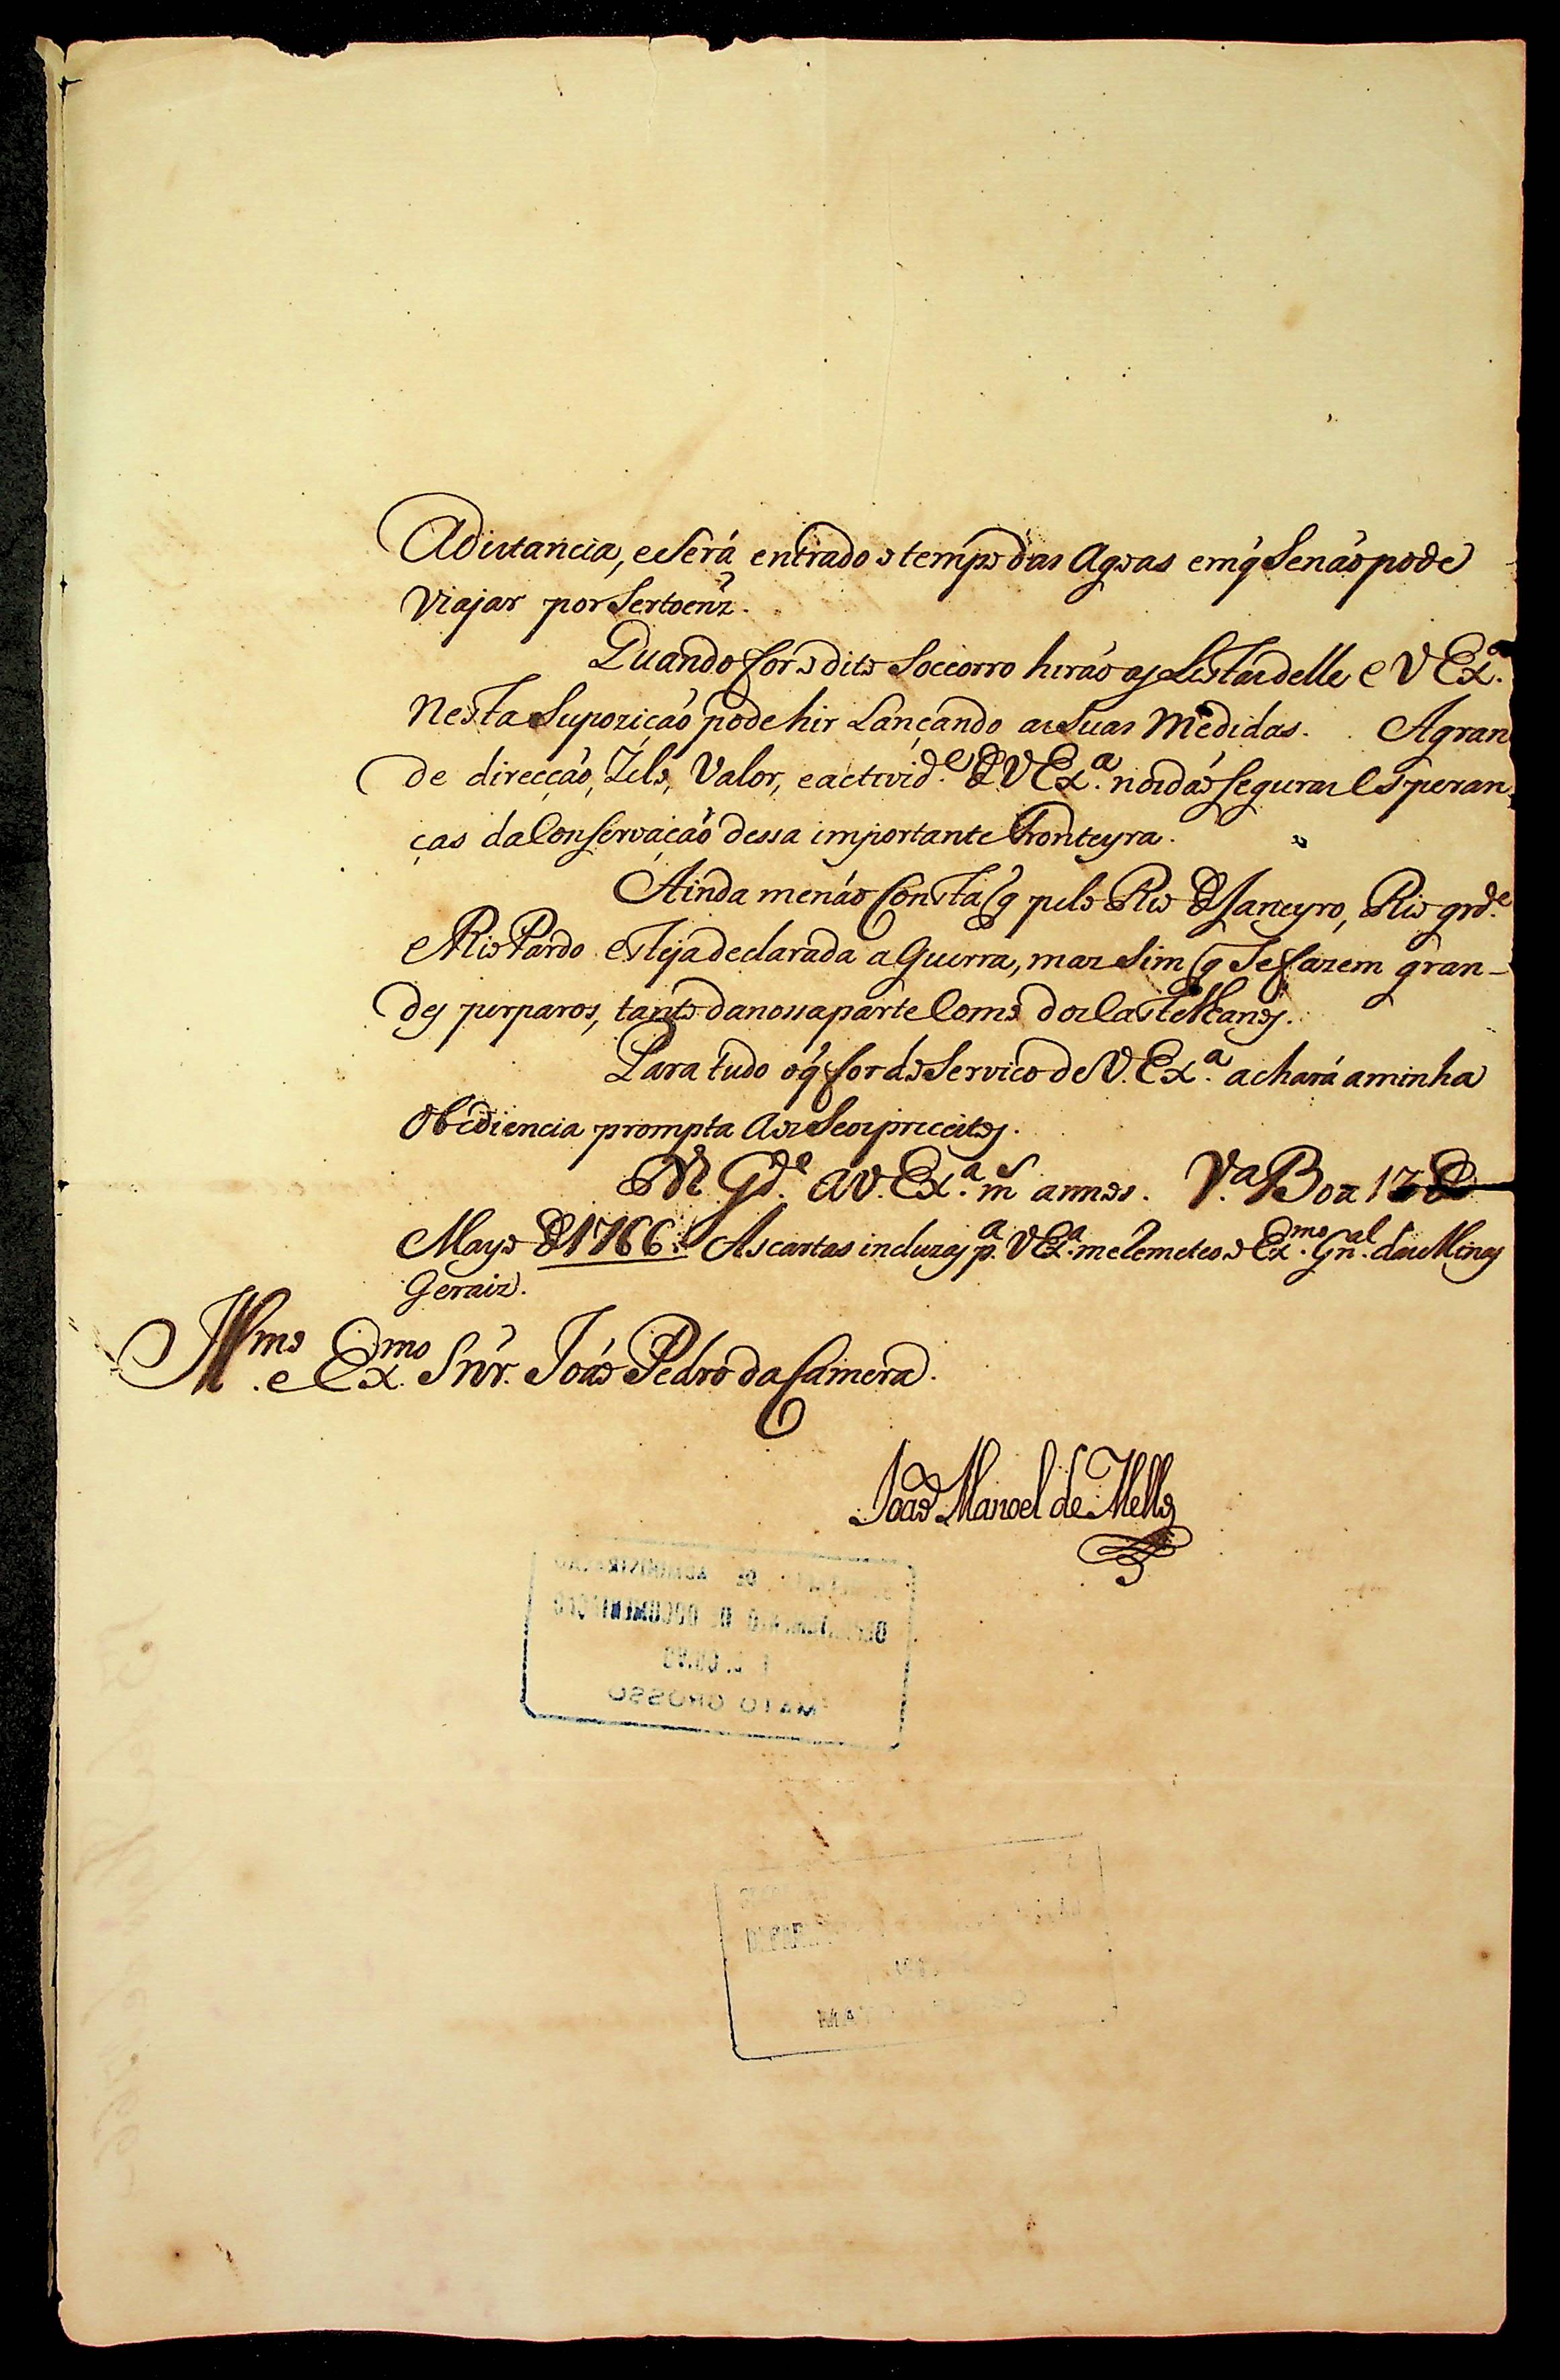 Adistancia, eserá entrado o tempo das Agoas emq̃ Senão pode
Viajar por Sertoeñz.
Quando for o dito Soccorro hirão as Listas delle e V Ex.ª
Nesta Supozicão pode hir Lançando as Suas Medidas. A gran
de direcção, Zelo, Valor, e activid.e de V Ex.ª nos dão seguras Esperan
ças da Conservação dessa importante Fronteyra.
Ainda me não Consta q̃ pelo Rio de Janeyro, Rio grd.e
e Rio Pardo esteja declarada a Guerra, mas Sim q̃ Se fazem gran-
des perparos, tanto da nossa parte Como dos Castelhanos.
Para tudo oq̃ for do Serviço de V. Ex.ª achará a minha
Obediencia prompta Aos Seos preceitos.
Gd.e a V. Ex.ª m.s annos. V.ª Boa 12 de
Mayo de 1766. As cartas incluzas p.ª V Ex.ª me Remeteo o Ex.mo Gn.al das Minas
Geraiz.
Ill.mo e Ex.mo Snr. João Pedro da Camera.
João Manoel de Mello
DE ADMINISTRAÇÃO
DE DOCUMENTAÇÃO
MATO GROSSO